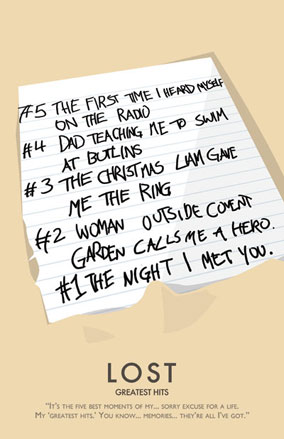 #5 THE FIRST TIME I HEARD MYSELF
ON THE RADIO
#4 DAD TEACHING ME TO SWIM
AT BUTLINS
#3 THE CHRISTMAS LIAM GAVE
ME THE RING
#2 WOMAN OUTSIDE COVENT
GARDEN CALLS ME A HERO.
#1 THE NIGHT I MET YOU.
LOST
GREATEST HITS
"IT'S THE FIVE BEST MOMENTS OF MY... SORRY EXCUSE FOR A LIFE.
MY 'GREATEST HITS.' YOU KNOW... MEMORIES... THEY'RE ALL I'VE GOT."